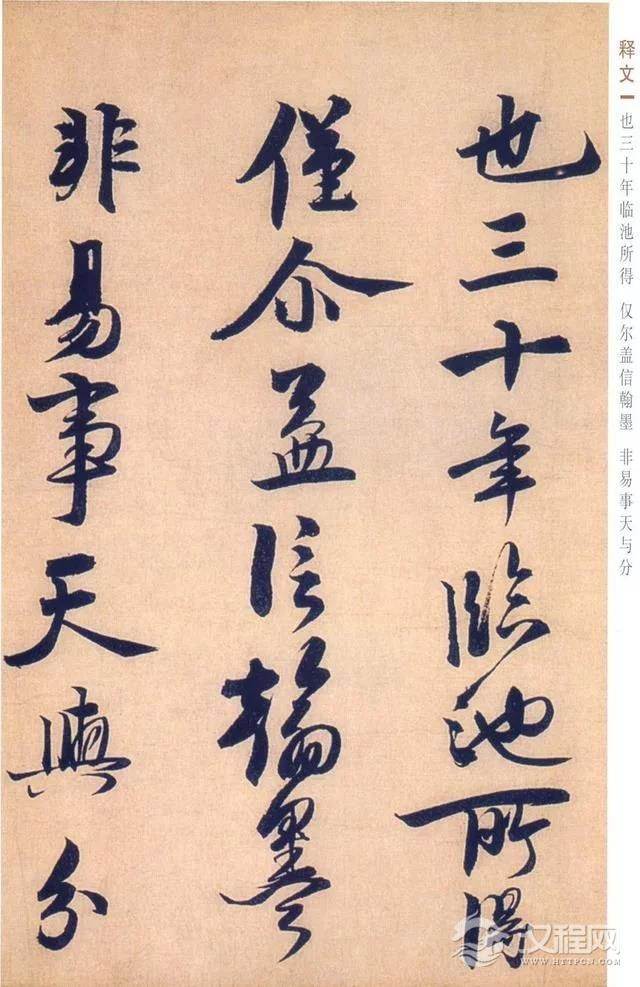 也三十年臨池所得
僅尒盖信翰墨
非易事天與分
释文一 也三十年临池所得 仅尔盖信翰墨 非易事天与分
汉程网
WWW.HTTPCN.COM